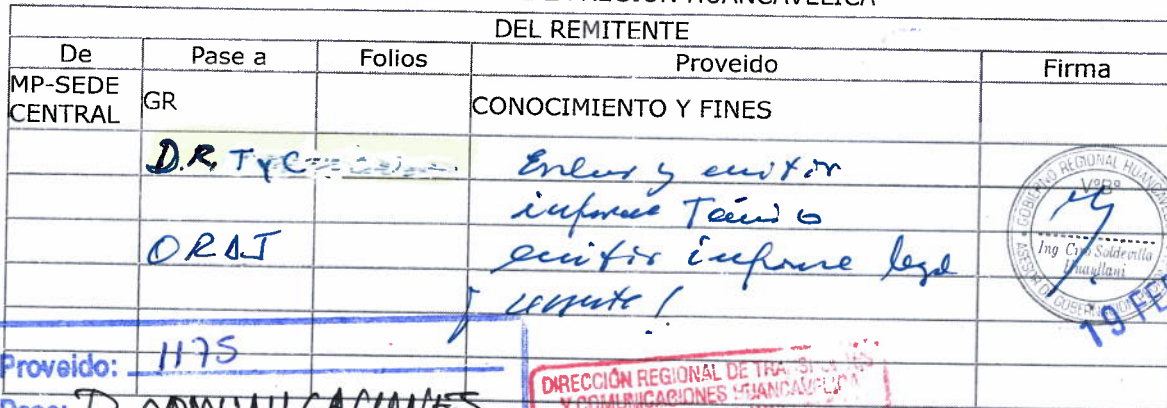 REGIÓN HUANCAVELICA
DEL REMITENTE
De Pase a Folios Proveido Firma
MP-SEDE CENTRAL GR CONOCIMIENTO Y FINES
D.R. TyC y emitir
informe Técnico
ORAJ emitir informe legal
GOBIERNO REGIONAL HUANCAVELICA
VºBº
Ing Ciro Soldevilla
Huayllani
ASESOR DE GOBERNACIÓN
19 FEB
Proveido: 1175
Pase: D. COMUNICACIONES
DIRECCIÓN REGIONAL DE TRANSPORTES
Y COMUNICACIONES HUANCAVELICA